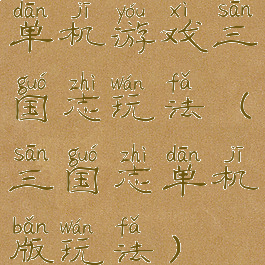 dān jī yóu xì sān
单机游戏三
guó zhì wán fǎ
国志玩法（
sān guó zhì dān jī
三国志单机
bǎn wán fǎ
版玩法）